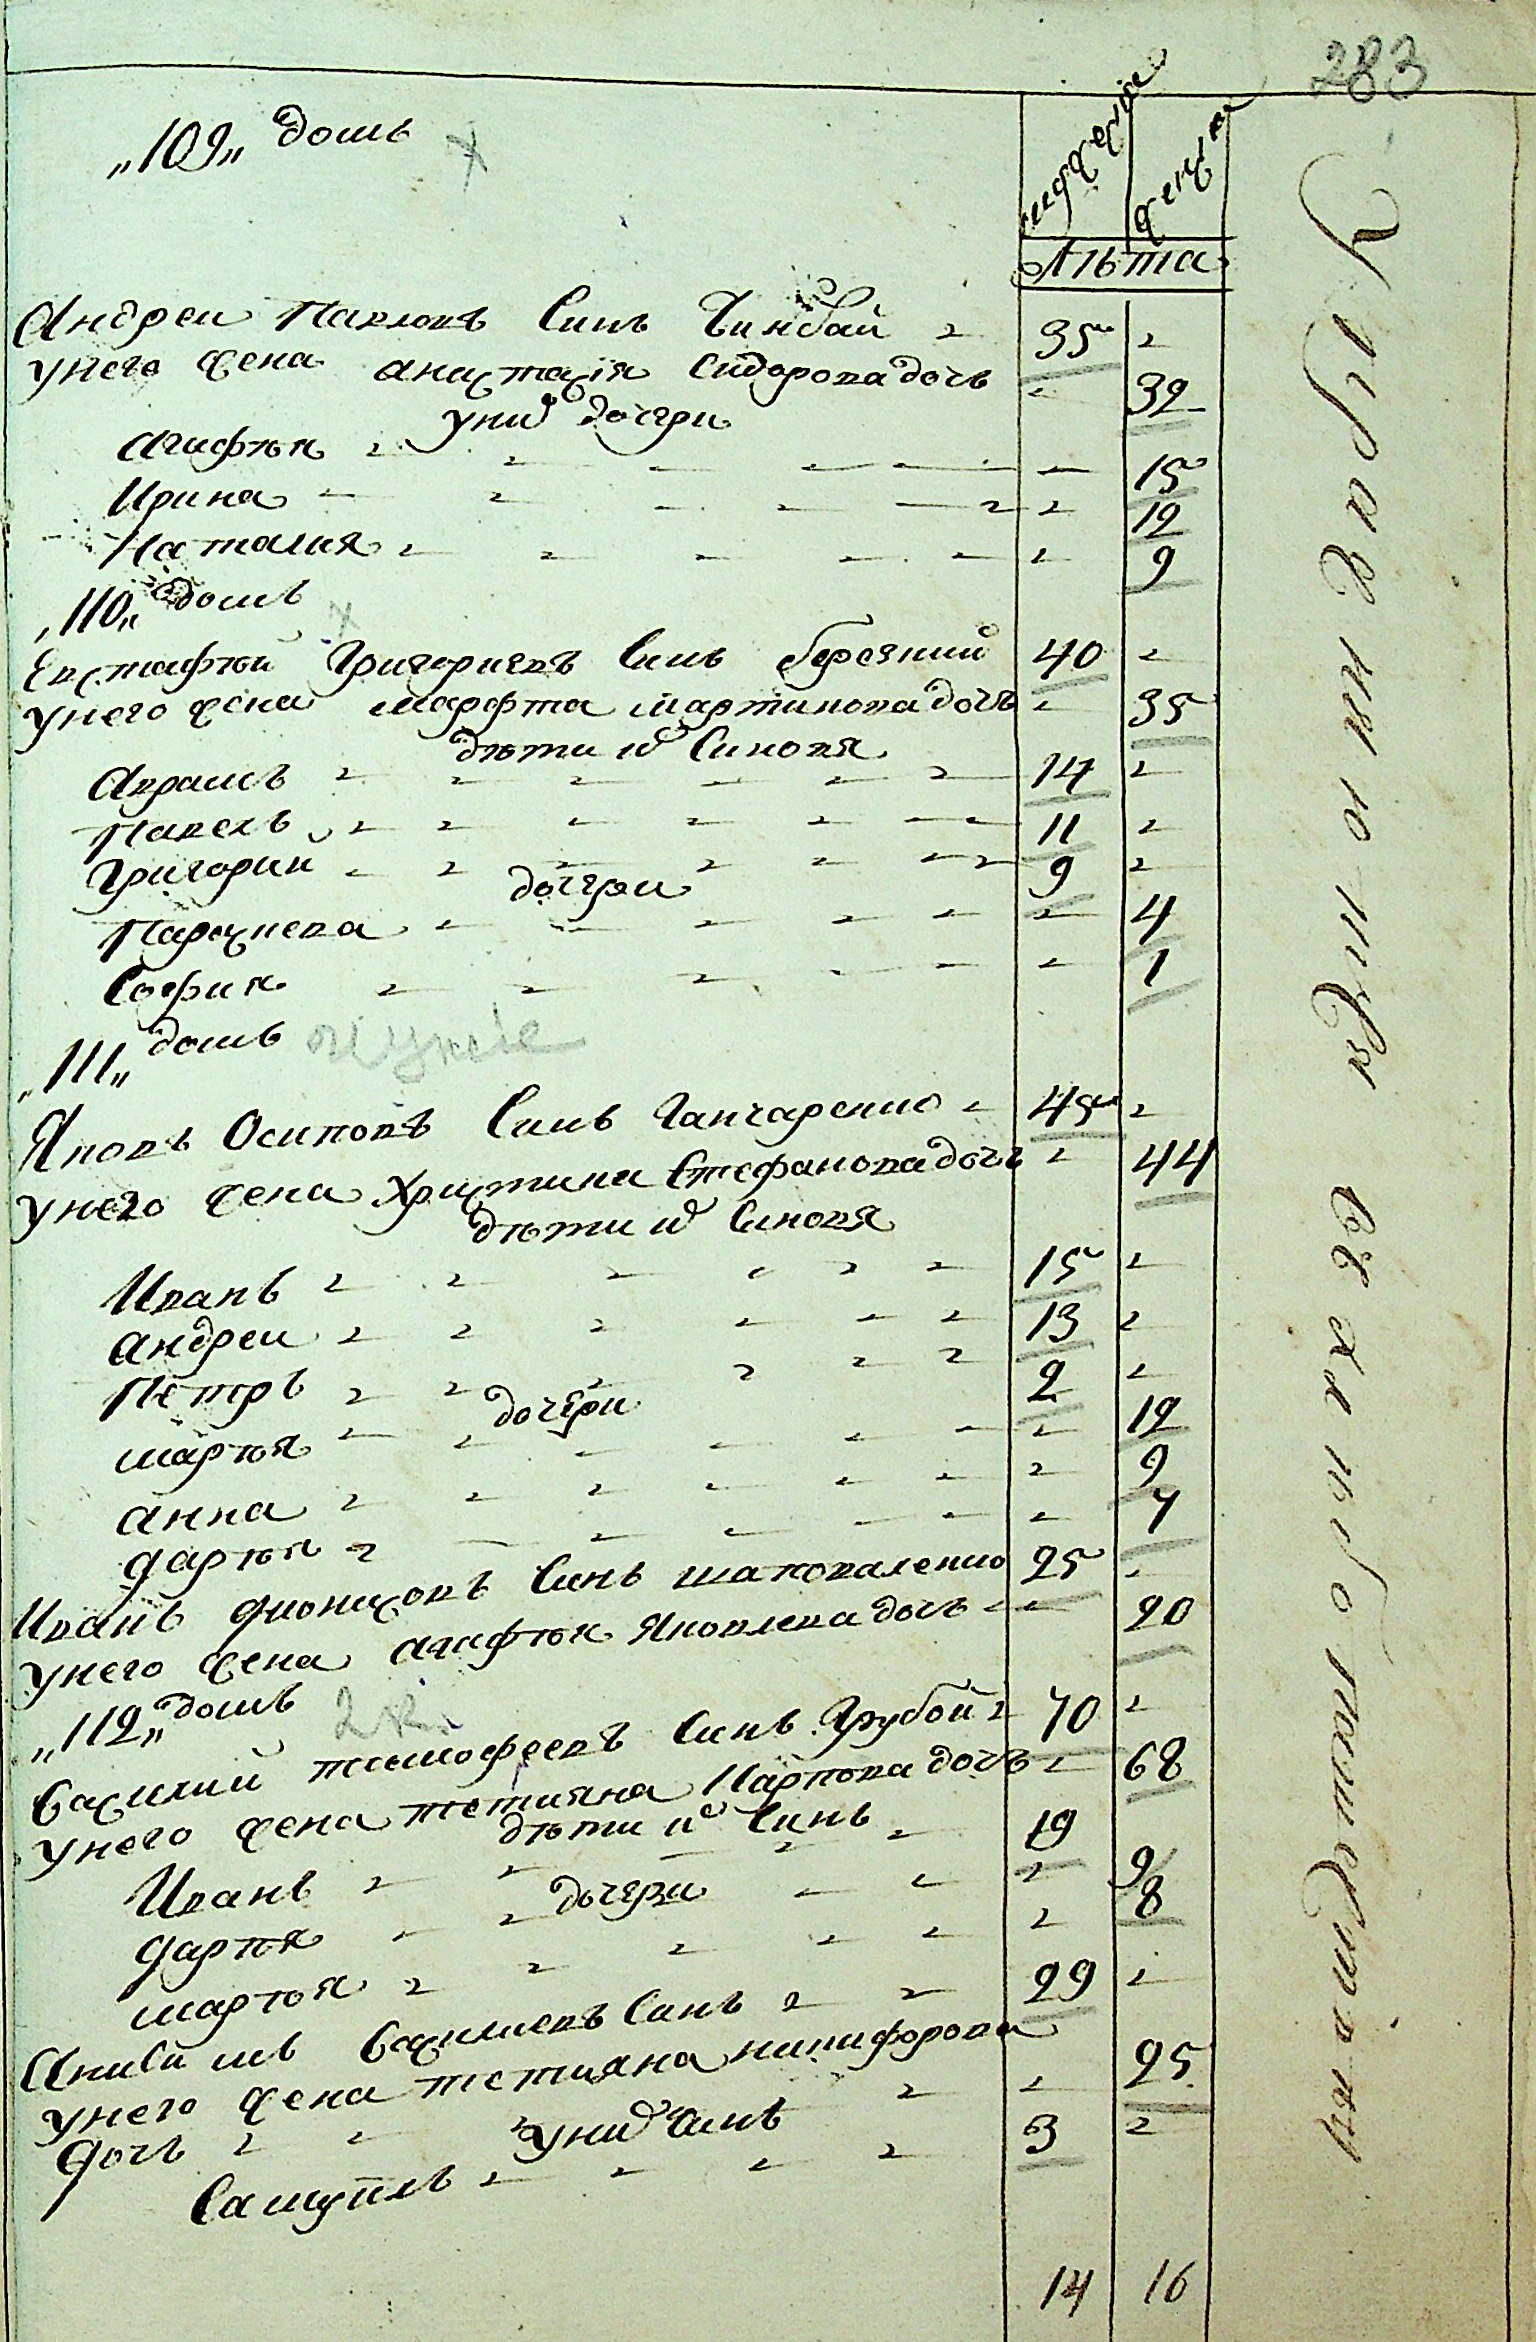 283
мужескіе женскіе
лѣта
„109„ домъ
Андреи Павловъ Синъ Чинбай 35 
унего жена анастасія Сидорова дочъ 32
уних дочери
Агафѣя 15
Ирина 12
Наталия 9
„110„ домъ
Евстафѣй Григориевъ Синъ бережний 40
унего жена марфта мартинова дочъ 35
дѣти их Синовя
Аврамъ 14
Павелъ 11
Григорий 9
дочери
Парасцева 4
София 1
„111„ домъ
Яковъ Осиповъ Синъ Ганчаренко 45
унего жена Христина Стефанова дочъ 44
дѣти их Синовя
Иванъ 15
андреи 13
Петръ 2
дочери
марѣя 12
анна 9
дарѣя 7
Иванъ дионисовъ Синъ шаповаленко 25
унего жена агафѣя Яковлева дочъ 20
„112„ домъ
Василий тимофеевъ Синъ Грубой 70
унего жена тетияна Карпова дочъ 68
дѣти их Синъ
Иванъ 19
дочери
дарѣя 9
марѣя 8
Якимъ Василиевъ Синъ 29
унего жена тетияна никифорова
дочъ 25
уних Синъ
Самуилъ 3
14 16